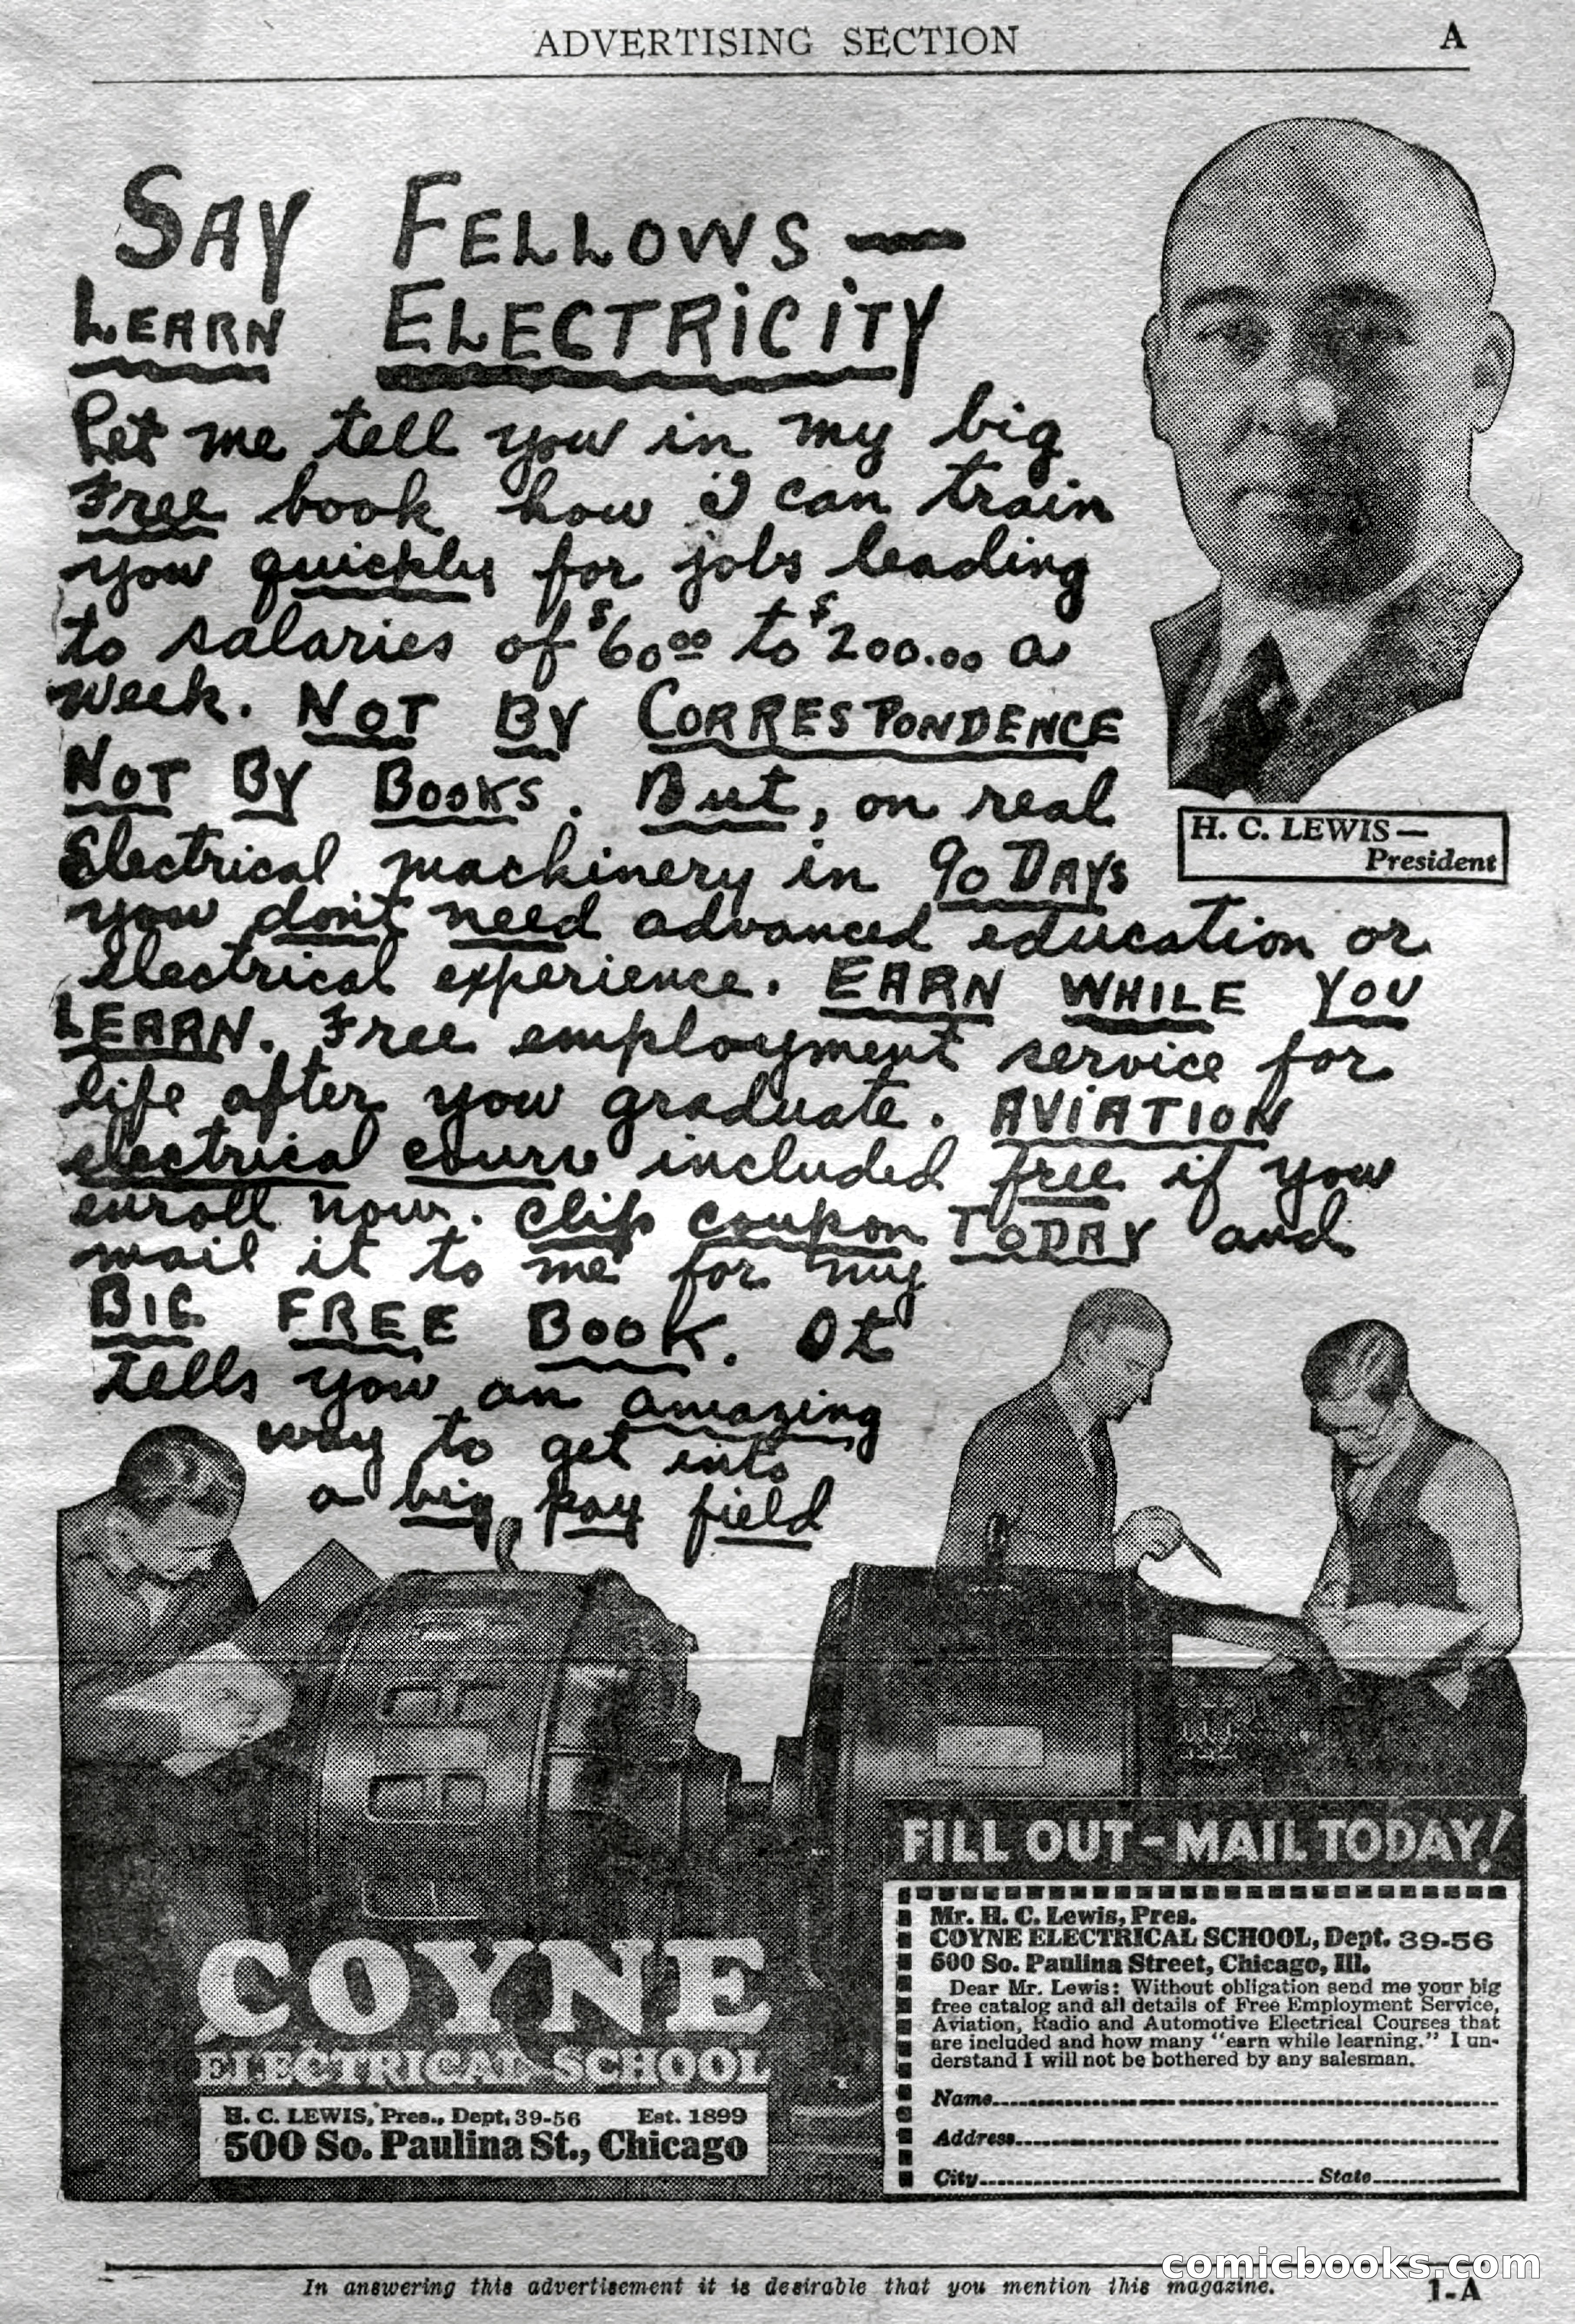 ADVERTISING SECTION A
SAY FELLOWS —
LEARN ELECTRICITY
Let me tell you in my big
Free book how I can train
you quickly for jobs leading
to salaries of $60.00 to $200.00 a
week. NOT BY CORRESPONDENCE
NOT BY BOOKS. But, on real
Electrical machinery in 90 DAYS
you don't need advanced education or
electrical experience. EARN WHILE YOU
LEARN. Free employment service for
life after you graduate. AVIATION
electrical course included free if you
enroll now. Clip coupon TODAY and
mail it to me for my
BIG FREE BOOK. It
tells you an amazing
way to get into
a big pay field
H. C. LEWIS—
President
COYNE
ELECTRICAL SCHOOL
H. C. LEWIS, Pres., Dept. 39-56 Est. 1899
500 So. Paulina St., Chicago
FILL OUT-MAIL TODAY!
Mr. H. C. Lewis, Pres.
COYNE ELECTRICAL SCHOOL, Dept. 39-56
500 So. Paulina Street, Chicago, Ill.
Dear Mr. Lewis: Without obligation send me your big
free catalog and all details of Free Employment Service,
Aviation, Radio and Automotive Electrical Courses that
are included and how many "earn while learning." I un-
derstand I will not be bothered by any salesman.
Name
Address
City State
In answering this advertisement it is desirable that you mention this magazine.
1-A
comicbooks.com